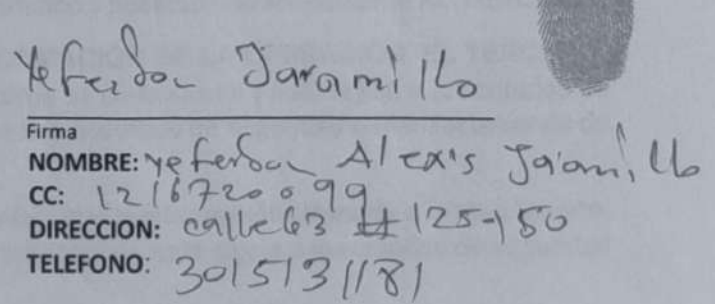 Yeferson Jaramillo
Firma
NOMBRE: Yeferson Alexis Jaramillo
CC: 1216720099
DIRECCION: calle 63 # 125-150
TELEFONO: 3015131181